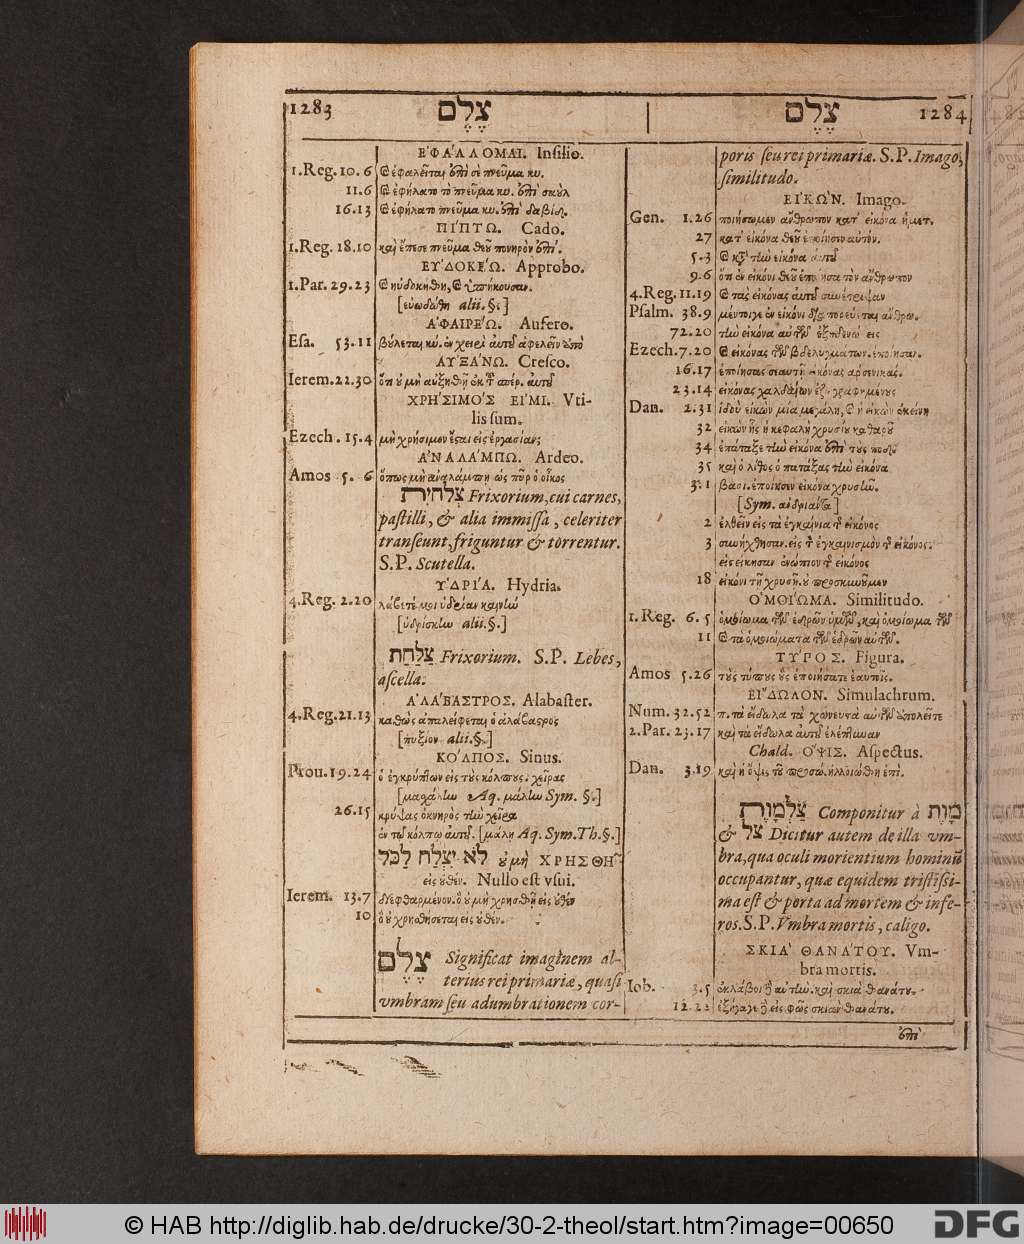 1283 צֶלֶם צֶלֶם 1284
ΕΦΑΛΛΟΜΑΙ. Insilio.
1.Reg.10.6 & ἐφαλεῖται ἐπὶ σὲ πνεῦμα κυ.
11.6 & ἐφήλατο τὸ πνεῦμα κυ. ἐπὶ σαούλ
16.13 & ἐφήλατο πνεῦμα κυ. ἐπὶ δαβίδ.
ΠΙΠΤΩ. Cado.
1.Reg.18.10 καὶ ἔπεσε πνεῦμα θεοῦ πονηρὸν ἐπί.
ΕΥΔΟΚΕΩ. Approbo.
1.Par.29.23 & ηὐδοκήθη, & ὑπήκουσαν.
[εὐωδώθη alii.§.]
ΑΦΑΙΡΕΩ. Aufero.
Esa. 53.11 βούλεται κυ. ἐν χειρὶ αὐτοῦ ἀφελεῖν ἀπὸ
ΑΥΞΑΝΩ. Cresco.
Ierem.22.30 ὅτι οὐ μὴ αὐξηθῇ ἐκ τοῦ σπέρ. αὐτοῦ
ΧΡΗΣΙΜΟΣ ΕΙΜΙ. Vti-
lis sum.
Ezech.15.4 μὴ χρήσιμον ἔσται εἰς ἐργασίαν;
ΑΝΑΛΑΜΠΩ. Ardeo.
Amos 5. 6 ὅπως μὴ ἀναλάμψῃ ὡς πῦρ ὁ οἶκος
צְלֹחִית Frixorium, cui carnes,
pastilli, & alia immissa, celeriter
transeunt, friguntur & torrentur.
S.P. Scutella.
ΥΔΡΙΑ. Hydria.
4.Reg. 2.20 λάβετέ μοι ὑδρίαν καινὴν
[ὑδρίσκην alii.§.]
צַלַּחַת Frixorium. S.P. Lebes,
ascella.
ΑΛΑΒΑΣΤΡΟΣ. Alabaster.
4.Reg.21.13 καθὼς ἀπαλείφεται ὁ ἀλάβαστρος
[πυξίον alii.§.]
ΚΟΛΠΟΣ. Sinus.
Prou.19.24 ὁ ἐγκρύπτων εἰς τοὺς κόλπους. χεῖρας
[μασχάλην Aq. μάλην Sym. §.]
26.15 κρύψας ὀκνηρὸς τὴν χεῖρα
ἐν τῷ κόλπῳ αὐτοῦ. [μάλῃ Aq. Sym.Th.§.]
לֹא יִצְלַח לַכֹּל οὐ μὴ ΧΡΗΣΘΗ
εἰς οὐθέν. Nullo est vsui.
Ierem. 13.7 διεφθαρμένον. ὃ οὐ μὴ χρησθῇ εἰς οὐθέν
10 ὃ οὐ χρησθήσεται εἰς οὐθέν.
צֶלֶם Significat imaginem al-
terius rei primariæ, quasi
vmbram seu adumbrationem cor-
poris seu rei primariæ. S.P. Imago,
similitudo.
ΕΙΚΩΝ. Imago.
Gen. 1.26 ποιήσωμεν ἄνθρωπον κατ' εἰκόνα ἡμετ.
27 κατ' εἰκόνα θεοῦ ἐποίησεν αὐτόν.
5.3 & κατὰ τὴν εἰκόνα αὐτοῦ
9.6 ὅτι ἐν εἰκόνι θεοῦ ἐποίησα τὸν ἄνθρωπον
4.Reg.11.19 & τὰς εἰκόνας αὐτοῦ συνέτριψαν
Psalm. 38.9 μέντοιγε ἐν εἰκόνι διαπορεύεται ἄνθρω.
72.20 τὴν εἰκόνα αὐτῶν ἐξουδενώσεις
Ezech.7.20 & εἰκόνας τῶν βδελυγμάτων. ἐποίησαν.
16.17 ἐποίησας σεαυτῇ εἰκόνας ἀρσενικάς.
23.14 εἰκόνας χαλδαίων ἐζωγραφημένους
Dan. 2.31 ἰδοὺ εἰκὼν μία μεγάλη, & ἡ εἰκὼν ἐκείνη
32 εἰκὼν ἧς ἡ κεφαλὴ χρυσίου καθαροῦ
34 ἐπάταξε τὴν εἰκόνα ἐπὶ τοὺς πόδας
35 καὶ ὁ λίθος ὁ πατάξας τὴν εἰκόνα
3.1 βασι. ἐποίησεν εἰκόνα χρυσῆν.
[Sym. ἀνδριάντα]
2 ἐλθεῖν εἰς τὰ ἐγκαίνια τῆς εἰκόνος
3 συνήχθησαν. εἰς τὸν ἐγκαινισμὸν τῆς εἰκόνος.
εἱστήκεισαν ἐνώπιον τῆς εἰκόνος
18 εἰκόνι τῇ χρυσῇ. οὐ προσκυνοῦμεν
ΟΜΟΙΩΜΑ. Similitudo.
1.Reg. 6.5 ὁμοίωμα τῶν ἑδρῶν ὑμῶν, καὶ ὁμοίωμα τῶν
11 & τὰ ὁμοιώματα τῶν ἑδρῶν αὐτῶν.
ΤΥΠΟΣ. Figura.
Amos 5.26 τοὺς τύπους οὓς ἐποιήσατε ἑαυτοῖς.
ΕΙΔΩΛΟΝ. Simulachrum.
Num.32.52 π. τὰ εἴδωλα τὰ χωνευτὰ αὐτῶν ἀπολεῖτε
2.Par.23.17 καὶ τὰ εἴδωλα αὐτοῦ ἐλέπτυναν
Chald. ΟΨΙΣ. Aspectus.
Dan. 3.19 καὶ ἡ ὄψις τοῦ προσώ. ἠλλοιώθη ἐπί.
צַלְמָוֶת Componitur à מָוֶת
& צֵל Dicitur autem de illa vm-
bra, qua oculi morientium hominũ
occupantur, quæ equidem tristissi-
ma est & porta ad mortem & infe-
ros. S.P. Vmbra mortis, caligo.
ΣΚΙΑ ΘΑΝΑΤΟΥ. Vm-
bra mortis.
Iob. 3.5 ἐκλάβοι δὲ αὐτὴν. καὶ σκιὰ θανάτου.
12.22 ἐξήγαγε δὲ εἰς φῶς σκιὰν θανάτου.
ἐπὶ
© HAB http://diglib.hab.de/drucke/30-2-theol/start.htm?image=00650 DFG